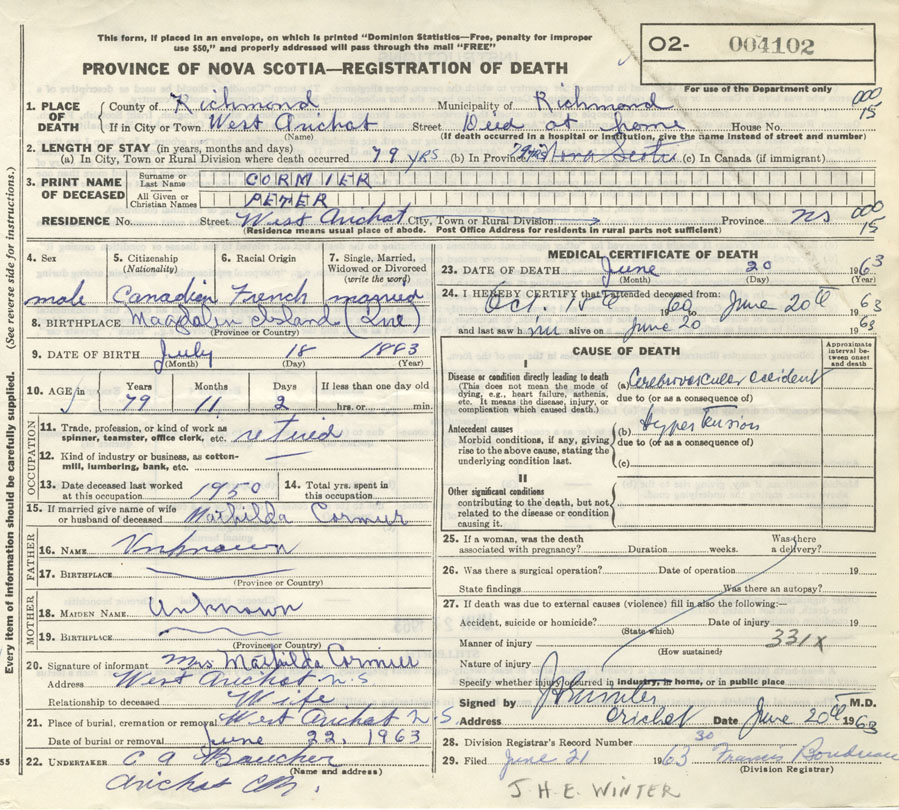 This form, if placed in an envelope, on which is printed "Dominion Statistics—Free, penalty for improper
use $50," and properly addressed will pass through the mail "FREE"
O2- 004102
For use of the Department only
PROVINCE OF NOVA SCOTIA—REGISTRATION OF DEATH
000
15
1. PLACE OF DEATH
County of Richmond Municipality of Richmond
If in City or Town West Arichat Street Died at home House No.
(Name) (If death occurred in a hospital or institution, give the name instead of street and number)
2. LENGTH OF STAY (in years, months and days)
(a) In City, Town or Rural Division where death occurred 79 yrs (b) In Province Nova Scotia (c) In Canada (if immigrant)
3. PRINT NAME OF DECEASED
Surname or Last Name CORMIER
All Given or Christian Names PETER
RESIDENCE No. Street West Arichat City, Town or Rural Division Province NS
000
15
(Residence means usual place of abode. Post Office Address for residents in rural parts not sufficient)
4. Sex
male
5. Citizenship
(Nationality)
Canadian
6. Racial Origin
French
7. Single, Married,
Widowed or Divorced
(write the word)
married
8. BIRTHPLACE Magdalin Island
(Province or Country)
9. DATE OF BIRTH July 18 1883
(Month) (Day) (Year)
10. AGE in Years Months Days If less than one day old
79 11 2 hrs. or min.
OCCUPATION
11. Trade, profession, or kind of work as
spinner, teamster, office clerk, etc. retired
12. Kind of industry or business, as cotton-
mill, lumbering, bank, etc. —
13. Date deceased last worked
at this occupation 1950
14. Total yrs. spent in
this occupation
15. If married give name of wife
or husband of deceased Mathilda Cormier
FATHER
16. NAME Unknown
17. BIRTHPLACE
(Province or Country)
MOTHER
18. MAIDEN NAME Unknown
19. BIRTHPLACE
(Province or Country)
20. Signature of informant Mrs Mathilda Cormier
Address West Arichat N.S
Relationship to deceased Wife
21. Place of burial, cremation or removal West Arichat N.S
Date of burial or removal June 22, 1963
22. UNDERTAKER C A Boucher
(Name and address)
Arichat CB.
MEDICAL CERTIFICATE OF DEATH
23. DATE OF DEATH June 20 1963
(Month) (Day) (Year)
24. I HEREBY CERTIFY that I attended deceased from:
Oct. 15th 1960 June 20th 1963
and last saw him alive on June 20 1963
CAUSE OF DEATH
Approximate
interval be-
tween onset
and death
I
Disease or condition directly leading to death
(This does not mean the mode of
dying, e.g., heart failure, asthenia,
etc. It means the disease, injury, or
complication which caused death.)
(a) Cerebrovascular accident
due to (or as a consequence of)
Antecedent causes
Morbid conditions, if any, giving
rise to the above cause, stating the
underlying condition last.
(b) Hypertension
due to (or as a consequence of)
(c)
II
Other significant conditions
contributing to the death, but not
related to the disease or condition
causing it.
25. If a woman, was the death Was there
associated with pregnancy? Duration weeks. a delivery?
26. Was there a surgical operation? Date of operation 19
State findings Was there an autopsy?
27. If death was due to external causes (violence) fill in also the following:—
Accident, suicide or homicide? Date of injury 19
(State which)
Manner of injury 331X
(How sustained)
Nature of injury
Specify whether injury occurred in industry, in home, or in public place
Signed by M.D.
Address Arichat Date June 20th 1963
28. Division Registrar's Record Number 30
29. Filed June 21 1963 Francis Boudreau
(Division Registrar)
J.H.E. WINTER
Every item of information should be carefully supplied. (See reverse side for instructions.)